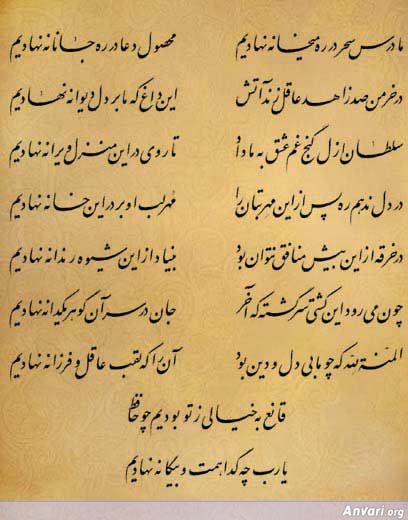 ما درس سحر در ره میخانه نهادیم محصول دعا در ره جانانه نهادیم
در خرمن صد زاهد عاقل زند آتش این داغ که ما بر دل دیوانه نهادیم
سلطان ازل گنج غم عشق به ما داد تا روی در این منزل ویرانه نهادیم
در دل ندهم ره پس از این مهر بتان را مهر لب او بر در این خانه نهادیم
در خرقه از این بیش منافق نتوان بود بنیاد از این شیوه رندانه نهادیم
چون می رود این کشتی سرگشته که آخر جان در سر آن گوهر یکدانه نهادیم
المنة لله که چو ما بی دل و دین بود آن را که لقب عاقل و فرزانه نهادیم
قانع به خیالی ز تو بودیم چو حافظ
یارب چه گدا همت و بیگانه نهادیم
Anvari.org